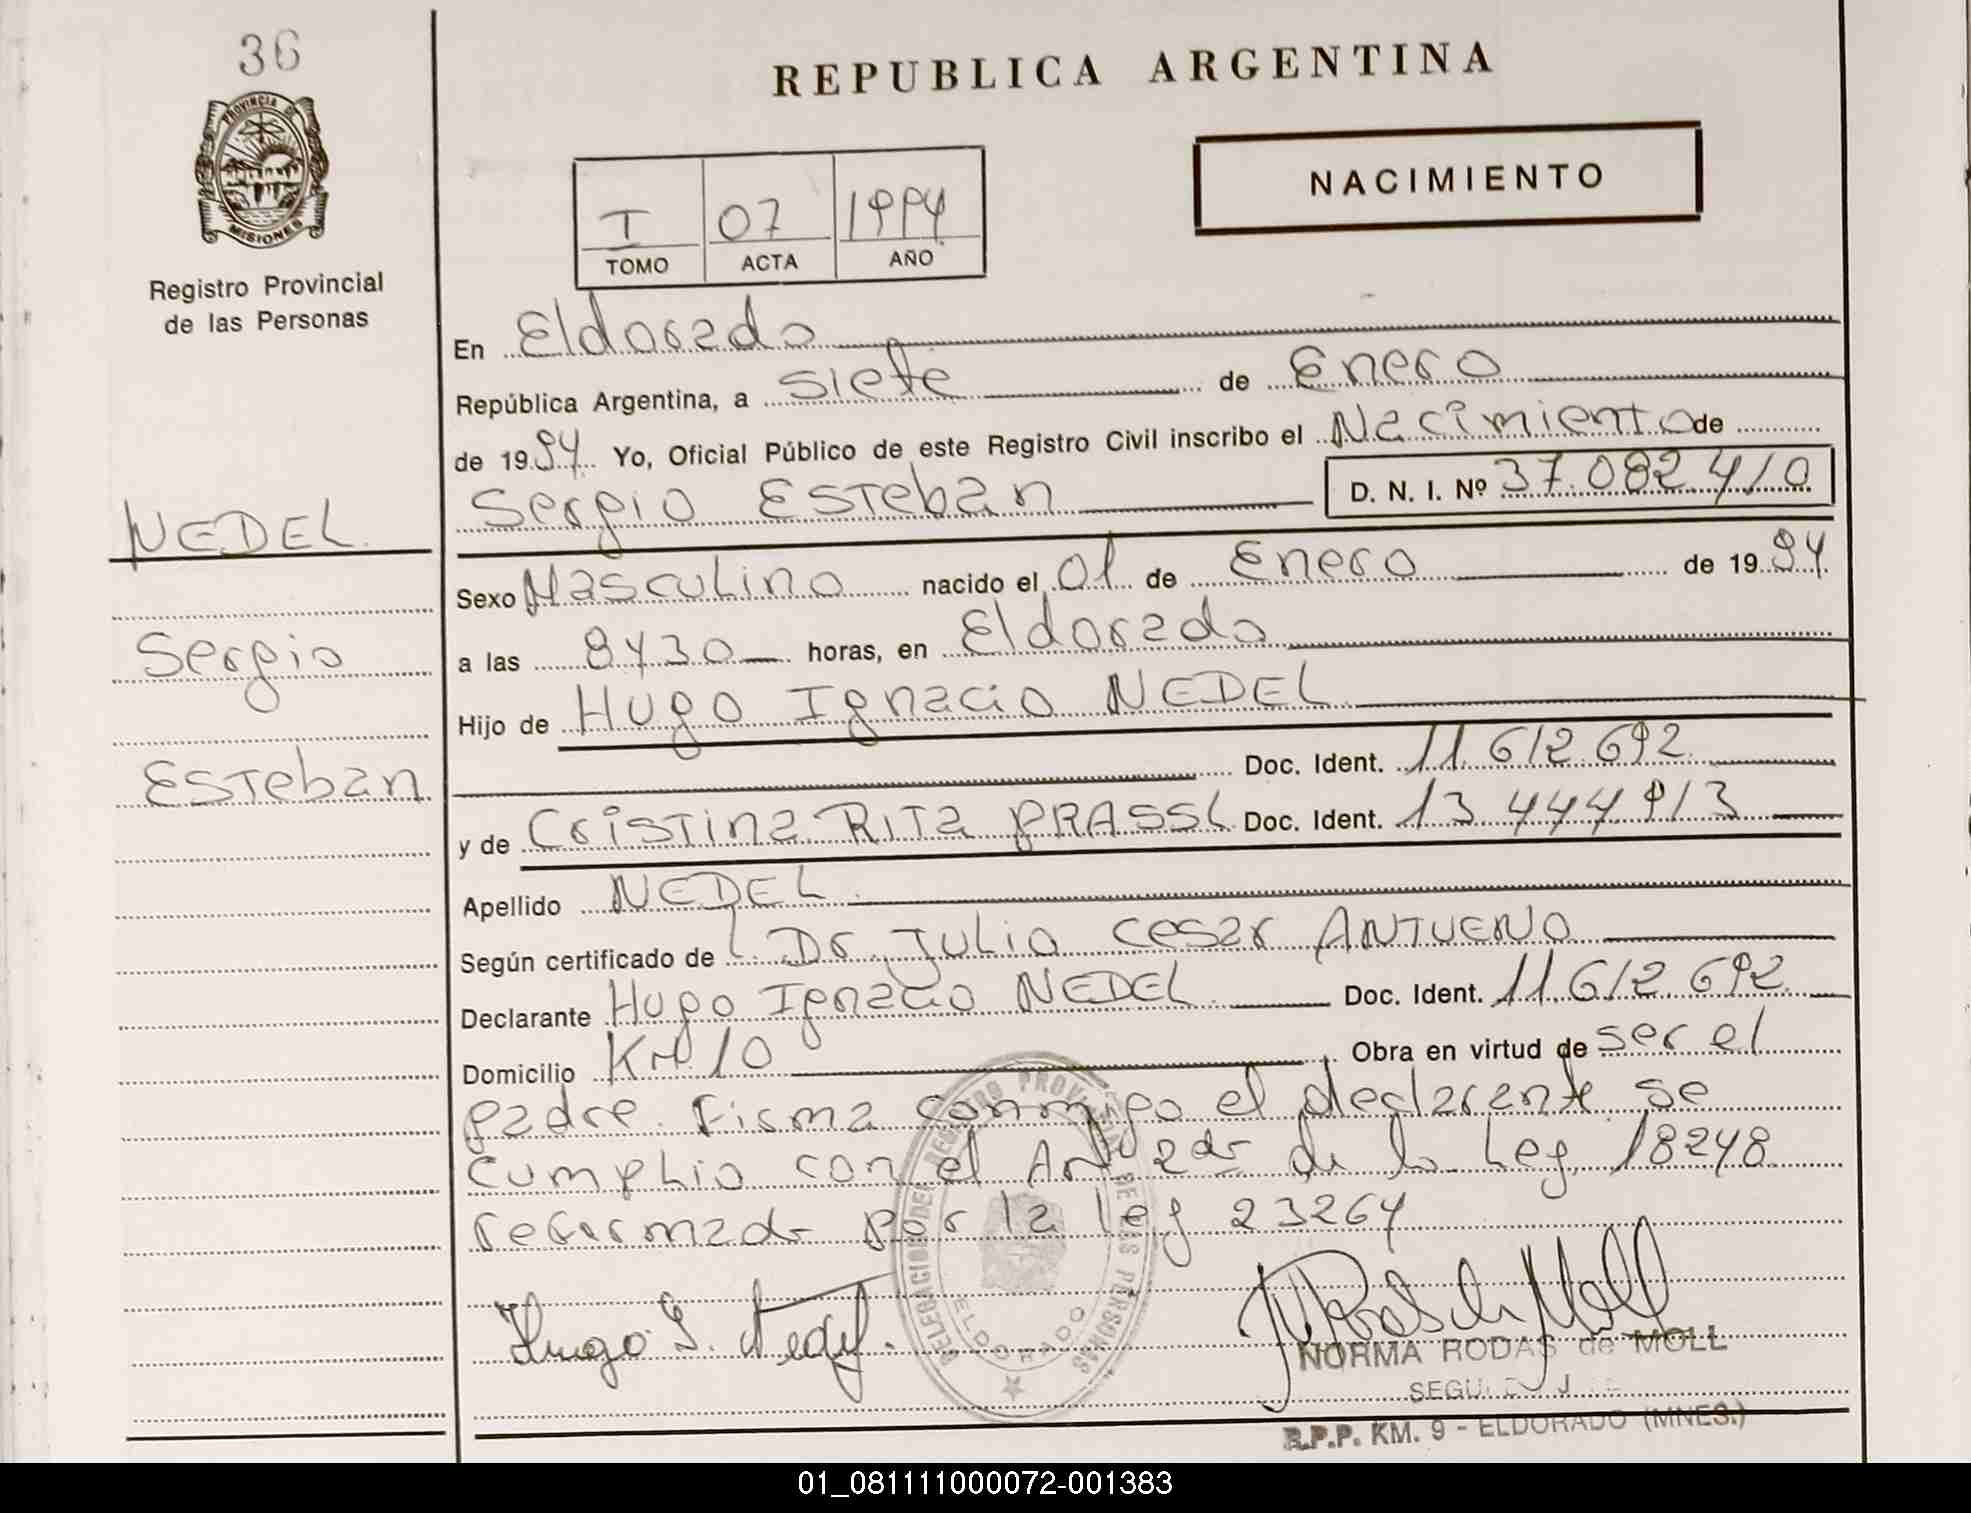 36
PROVINCIA DE
MISIONES
Registro Provincial
de las Personas
REPUBLICA ARGENTINA
NACIMIENTO
I 07 1994
TOMO ACTA AÑO
En Eldorado
República Argentina, a siete de Enero
de 1994 Yo, Oficial Público de este Registro Civil inscribo el Nacimiento de
Sergio Esteban D. N. I. Nº 37.082410
NEDEL
Sergio
Esteban
Sexo Masculino nacido el 01 de Enero de 1994
a las 8y30 horas, en Eldorado
Hijo de Hugo Ignacio NEDEL
Doc. Ident. 11.612.692
y de Cristina Rita PRASSL Doc. Ident. 13.444.913
Apellido NEDEL
Según certificado de Dr Julio Cesar ANTUENO
Declarante Hugo Ignacio NEDEL Doc. Ident. 11.612.692
Domicilio Km 10 Obra en virtud de ser el
padre. Firma conmigo el declarante se
cumplio con el Art 2do de la Ley 18248
reformado por la ley 23264
Hugo I. Nedel.
DELEGACION DEL REGISTRO PROVINCIAL DE LAS PERSONAS
ELDORADO
NORMA RODAS de MOLL
R.P.P. KM. 9 - ELDORADO (MNES.)
01_081111000072-001383